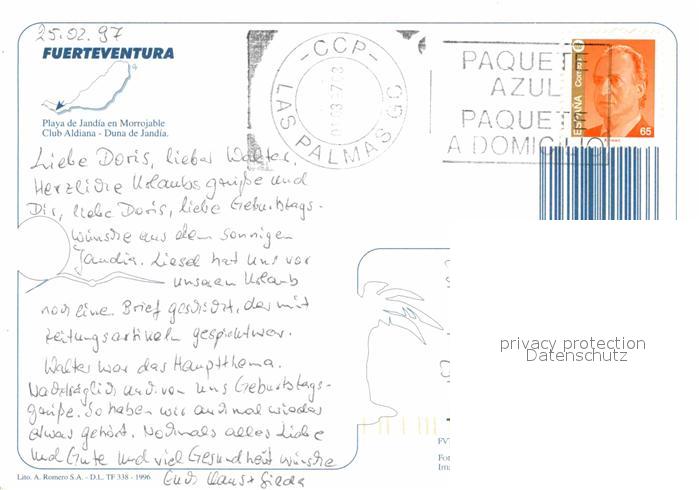 25.02.97
FUERTEVENTURA
Playa de Jandía en Morrojable
Club Aldiana - Duna de Jandía.
Liebe Doris, lieber Walter,
Herzliche Urlaubsgrüße und
Dir, liebe Doris, liebe Geburtstags-
wünsche aus dem sonnigen
Jandia. Liesel hat uns vor
unserem Urlaub
noch eine Brief geschickt, der mit
Zeitungsartikeln gespickt war.
Walter war das Hauptthema.
Nachträglich auch von uns Geburtstags-
grüße. So haben wir auch mal wieder
etwas gehört. Nochmals alles Liebe
und Gute und viel Gesundheit wünsche
Euch Klaus + Gisela
Lito. A. Romero S.A. - D.L. TF 338 - 1996
-CCP-
LAS PALMAS GC
PAQUETE
AZUL
PAQUETE
A DOMICILIO
ESPAÑA
Correos
65
privacy protection
Datenschutz